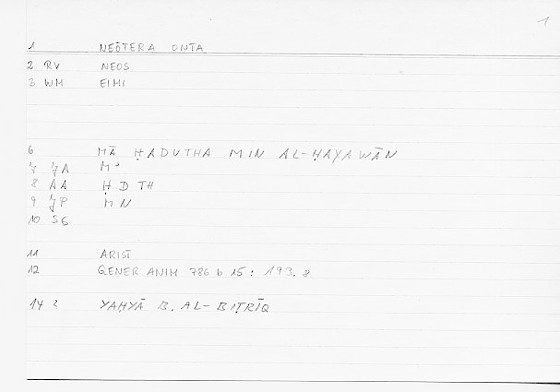 1
1 NEŌTERA ONTA
2 RV NEOS
3 WM EIMI
6 MĀ ḤADUTHA MIN AL-ḤAYAWĀN
7 JA Mʾ
8 AA Ḥ D TH
9 JP M N
10 SE
11 ARIST
12 GENER ANIM 786 b 15 : 193. 8
14 2 YAḤYĀ B. AL-BIṬRĪQ